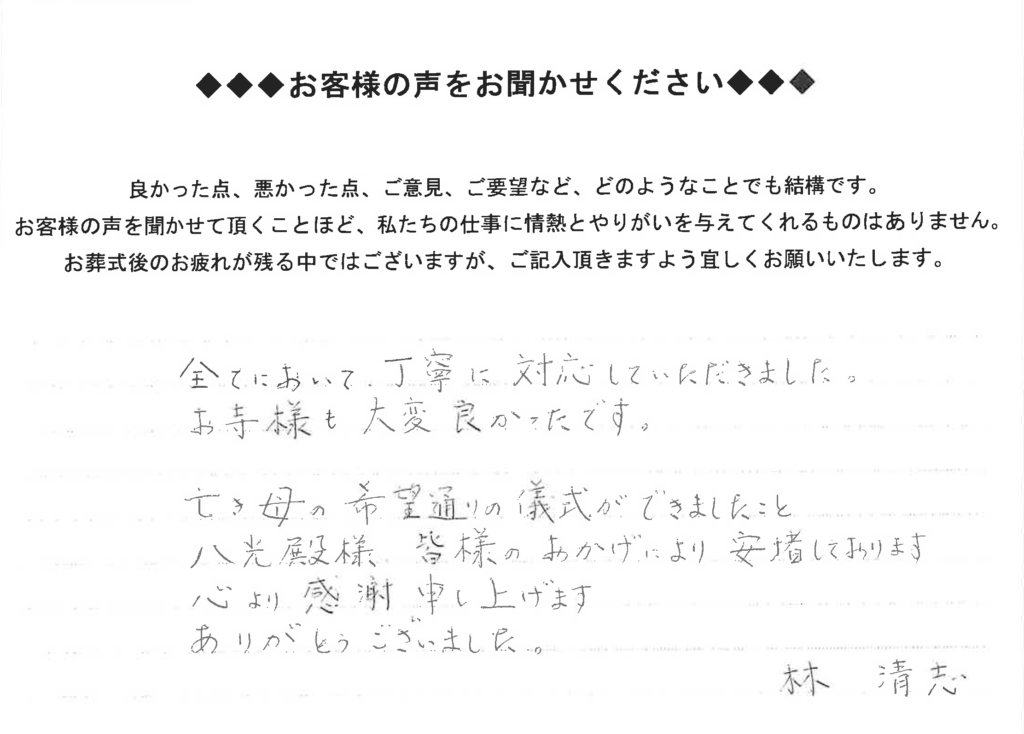 ◆◆◆お客様の声をお聞かせください◆◆◆
良かった点、悪かった点、ご意見、ご要望など、どのようなことでも結構です。
お客様の声を聞かせて頂くことほど、私たちの仕事に情熱とやりがいを与えてくれるものはありません。
お葬式後のお疲れが残る中ではございますが、ご記入頂きますよう宜しくお願いいたします。
全てにおいて丁寧に対応していただきました。
お寺様も大変良かったです。
亡き母の希望通りの儀式ができましたこと
八光殿様、皆様のおかげにより安堵しております
心より感謝申し上げます
ありがとうございました。
林 清志